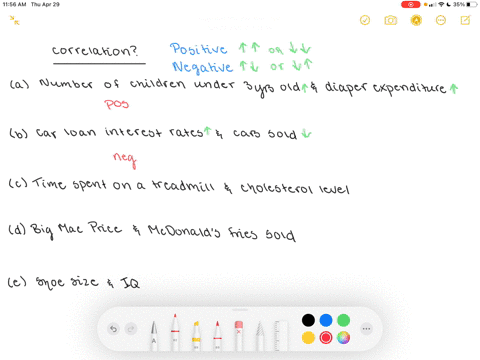 11:56 AM Thu Apr 29
35%
correlation?
Positive ↑↑ or ↓↓
Negative ↑↓ or ↓↑
(a) Number of children under 3yrs old↑ & diaper expenditure ↑
pos
(b) Car loan interest rates↑ & cars sold ↓
neg
(c) Time spent on a treadmill & cholesterol level
(d) Big Mac Price & McDonald's fries sold
(e) Shoe size & IQ
A